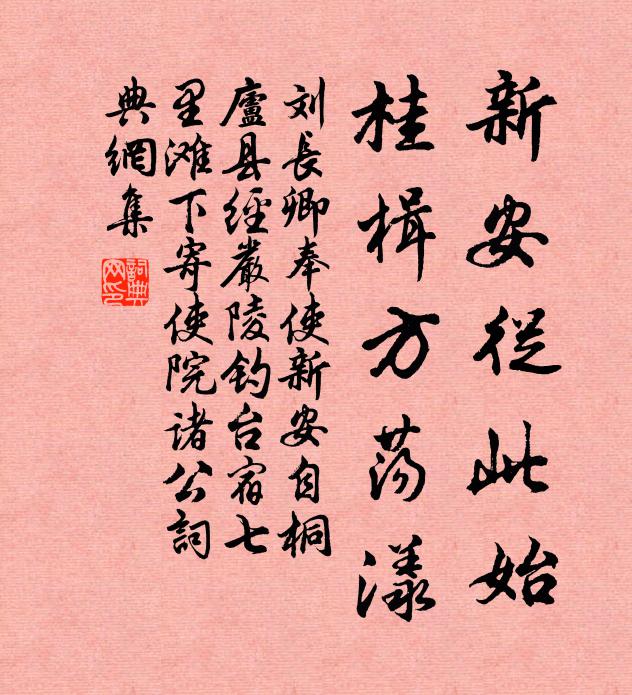 新安從此始
桂楫方荡漾
刘長卿奉使新安自桐
廬县經嚴陵钓台宿七
里滩下寄使院诸公詞
典網集
詞典
网印